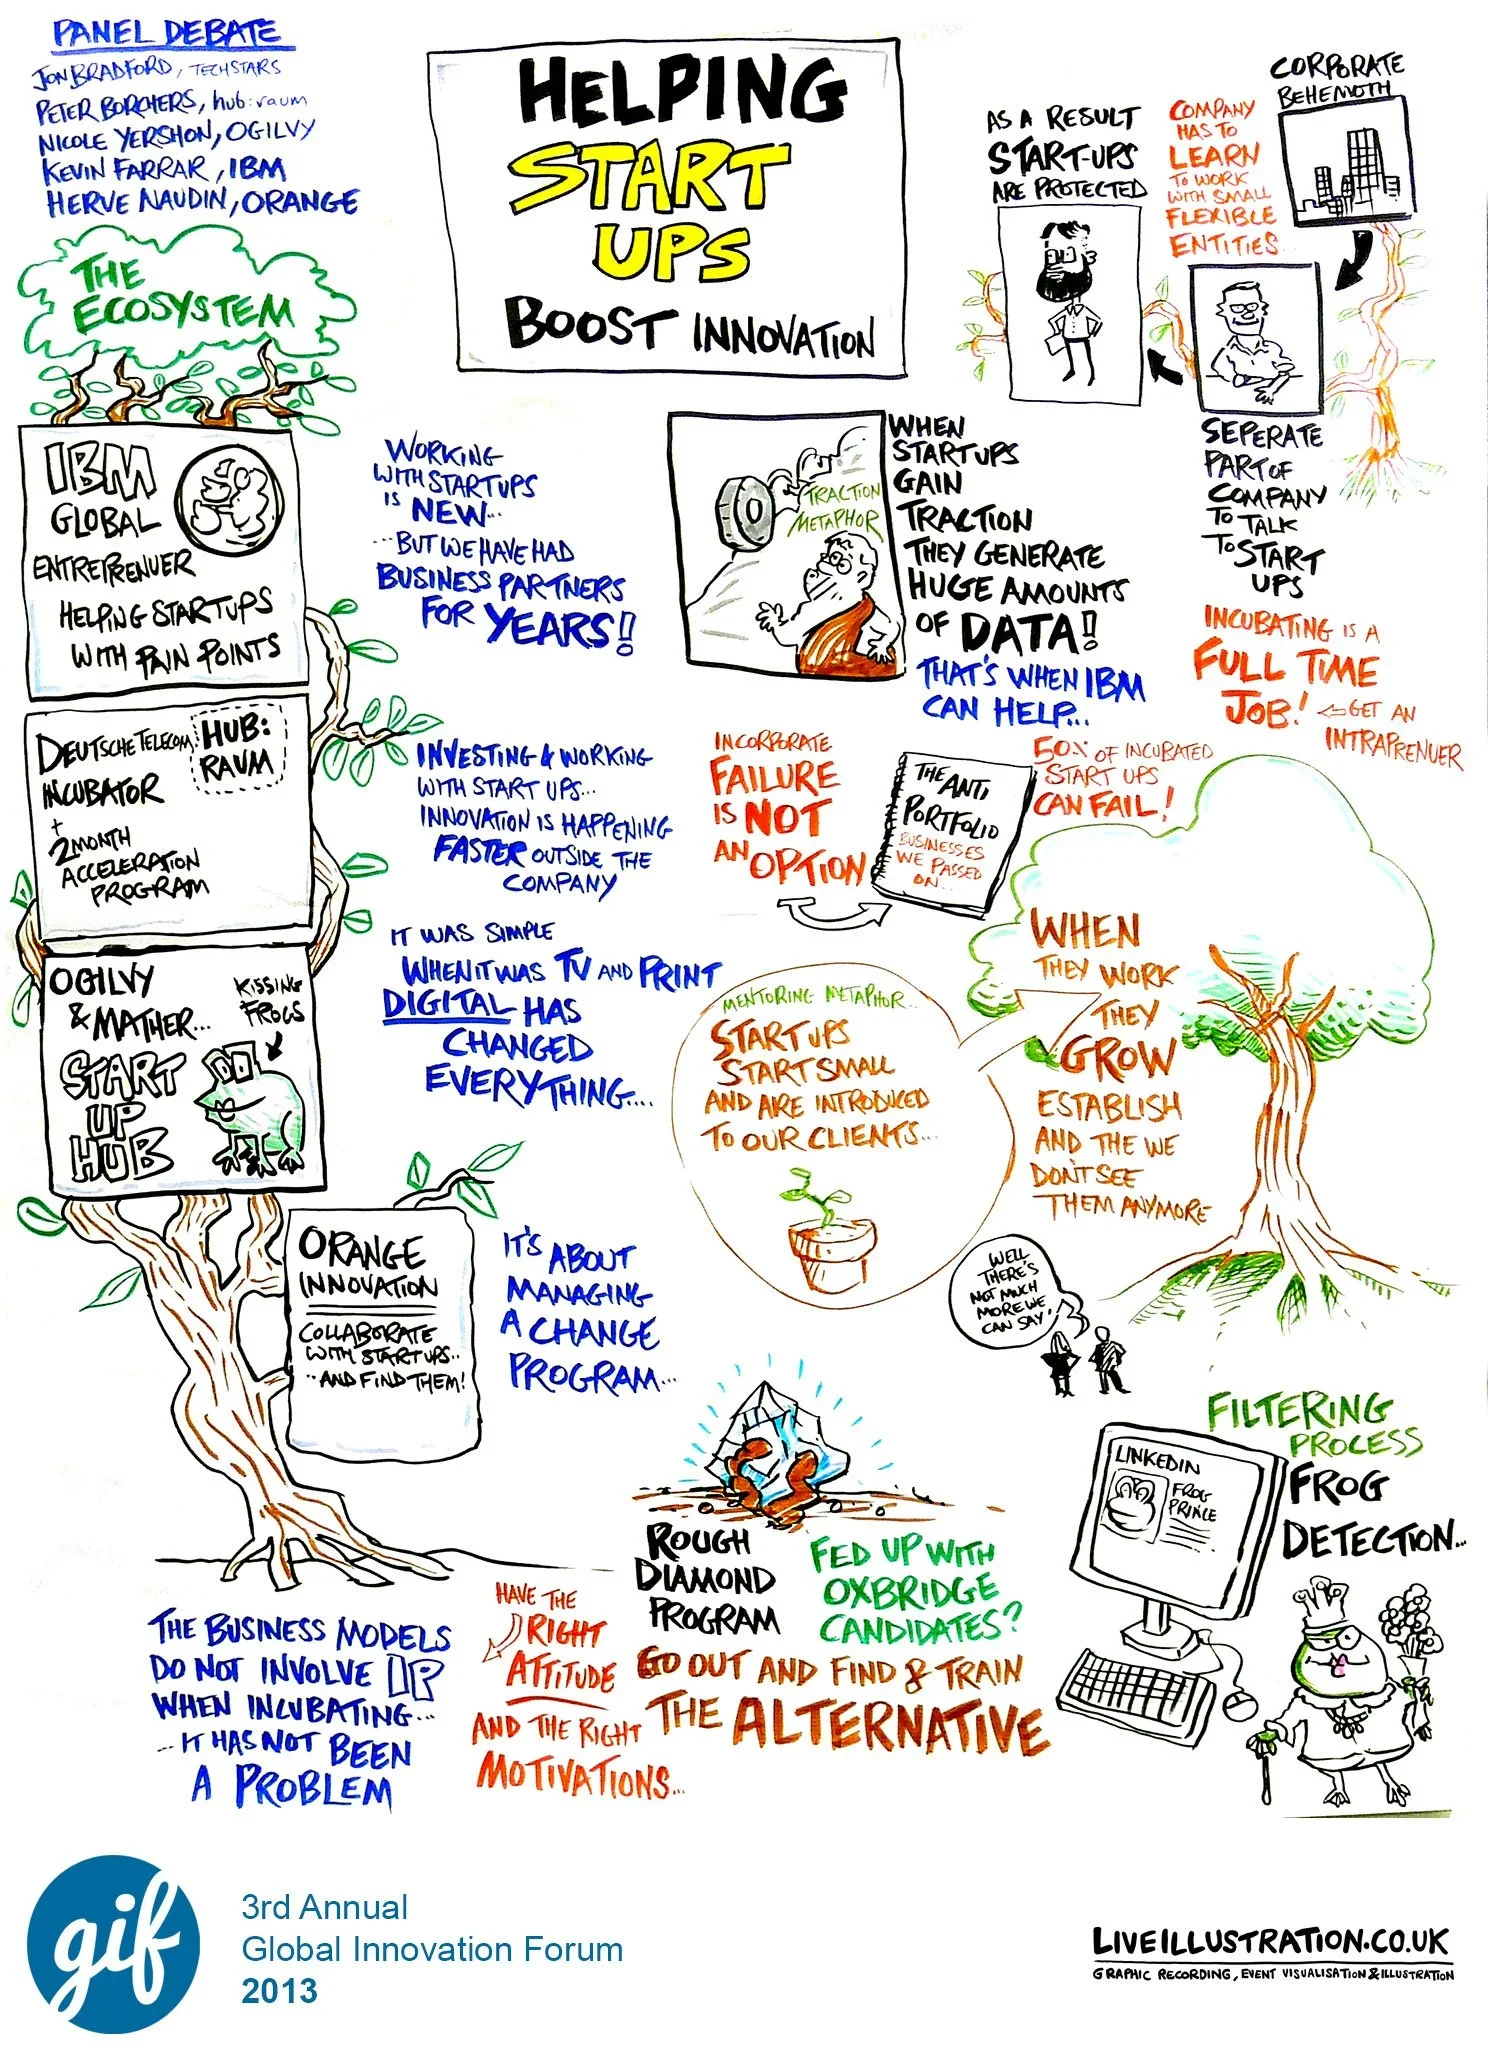 PANEL DEBATE
JON BRADFORD, TECHSTARS
PETER BORCHERS, hub:raum
NICOLE YERSHON, OGILVY
KEVIN FARRAR, IBM
HERVE NAUDIN, ORANGE
HELPING
START
UPS
BOOST INNOVATION
THE
ECOSYSTEM
IBM
GLOBAL
ENTREPRENUER
HELPING STARTUPS
WITH PAIN POINTS
DEUTSCHE TELECOM
INCUBATOR
+
2 MONTH
ACCELERATION
PROGRAM
HUB:
RAUM
OGILVY
& MATHER...
START
UP
HUB
KISSING
FROGS
ORANGE
INNOVATION
COLLABORATE
WITH STARTUPS..
..AND FIND THEM!
WORKING
WITH STARTUPS
IS NEW...
...BUT WE HAVE HAD
BUSINESS PARTNERS
FOR YEARS!
INVESTING & WORKING
WITH START UPS...
INNOVATION IS HAPPENING
FASTER OUTSIDE THE
COMPANY
IT WAS SIMPLE
WHEN IT WAS TV AND PRINT
DIGITAL HAS
CHANGED
EVERYTHING...
IT'S ABOUT
MANAGING
A CHANGE
PROGRAM...
THE BUSINESS MODELS
DO NOT INVOLVE IP
WHEN INCUBATING...
...IT HAS NOT BEEN
A PROBLEM
HAVE THE
RIGHT
ATTITUDE
AND THE RIGHT
MOTIVATIONS...
TRACTION
METAPHOR
WHEN
STARTUPS
GAIN
TRACTION
THEY GENERATE
HUGE AMOUNTS
OF DATA!
THAT'S WHEN IBM
CAN HELP...
AS A RESULT
START-UPS
ARE PROTECTED
COMPANY
HAS TO
LEARN
TO WORK
WITH SMALL
FLEXIBLE
ENTITIES...
CORPORATE
BEHEMOTH
SEPERATE
PART OF
COMPANY
TO TALK
TO START
UPS
INCUBATING IS A
FULL TIME
JOB! ⇐ GET AN
INTRAPRENUER
IN CORPORATE
FAILURE
IS NOT
AN OPTION
THE ANTI
PORTFOLIO
BUSINESSES
WE PASSED
ON...
50% OF INCUBATED
START UPS
CAN FAIL!
MENTORING METAPHOR...
START UPS
START SMALL
AND ARE INTRODUCED
TO OUR CLIENTS...
WHEN
THEY WORK
THEY
GROW
ESTABLISH
AND THE WE
DON'T SEE
THEM ANYMORE
WELL
THERE'S
NOT MUCH
MORE WE
CAN SAY!
ROUGH
DIAMOND
PROGRAM
FED UP WITH
OXBRIDGE
CANDIDATES?
GO OUT AND FIND & TRAIN
THE ALTERNATIVE
FILTERING
PROCESS
FROG
DETECTION...
LINKEDIN
FROG
PRINCE
gif
3rd Annual
Global Innovation Forum
2013
LIVEILLUSTRATION.CO.UK
GRAPHIC RECORDING, EVENT VISUALISATION & ILLUSTRATION